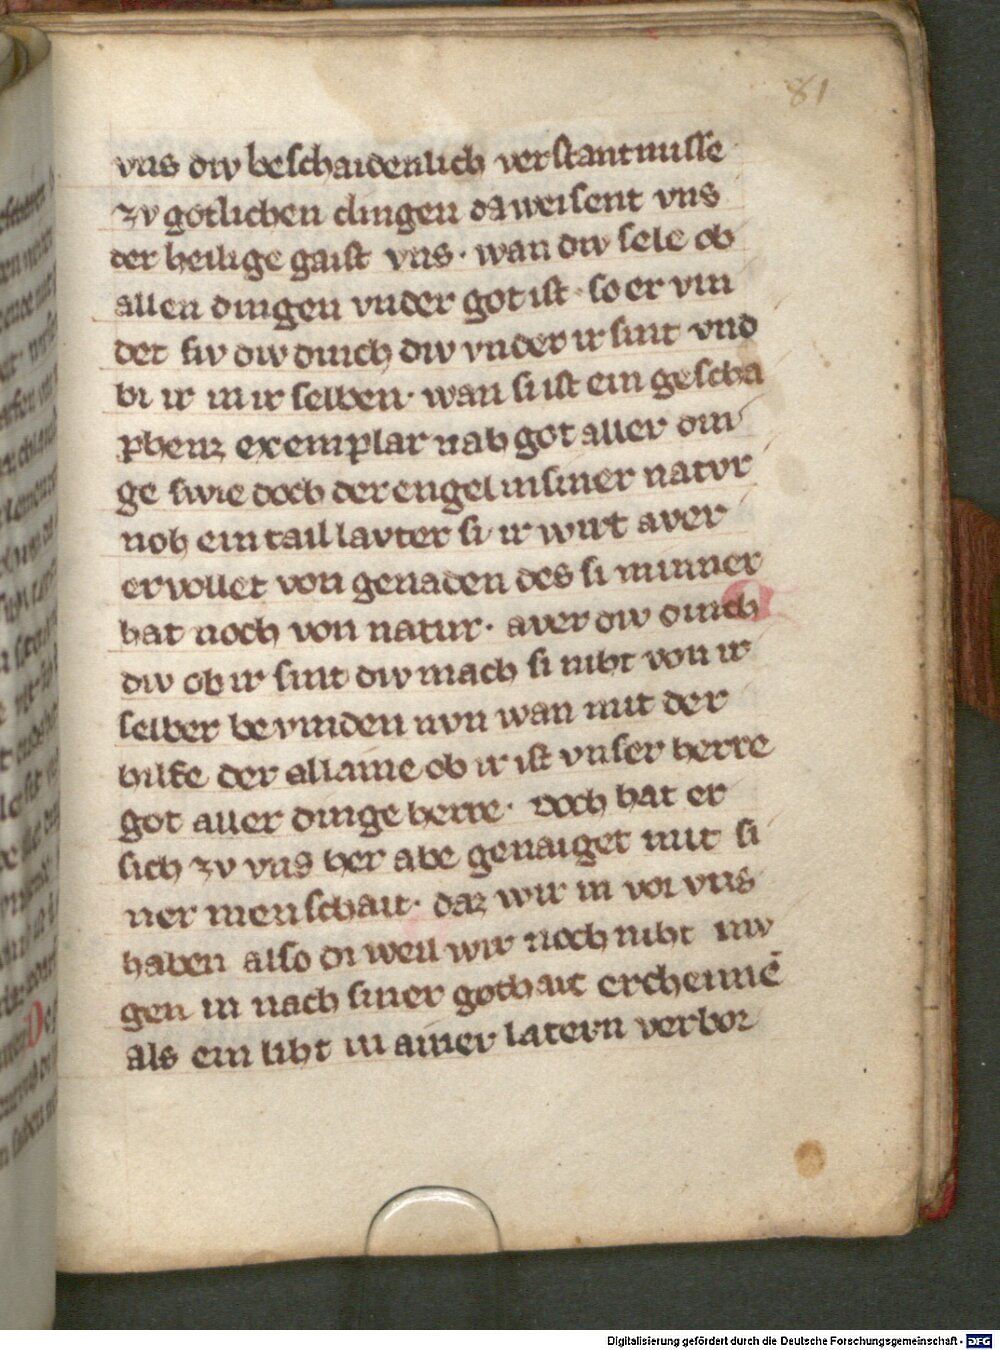 81
vns div beschaidenlich verstantnusse
zv gotlichen dingen da weisent vns
der heilige gaist vns · wan div sele ob
allen dingen vnder got ist · so er vin
det siv div dinch div vnder ir sint vnd
bi ir in ir selben · wan si ist ein gescha
phenz exemplar nah got aller din
ge swie doch der engel in siner natvr
noh ein tail lavter si ir wirt aver
ervollet von genaden des si minner
hat noch von natur · aver div dinch
div ob ir sint div mach si niht von ir
selber bevinden nvn wan mit der
hilfe der allaine ob ir ist vnser herre
got aller dinge herre · doch hat er
sich zv vns her abe genaiget mit si
ner menschait · daz wir in vor vns
haben also di weil wir noch niht mv
gen in nach siner gothait erchennē
als ein liht in ainer latern verbor
Digitalisierung gefördert durch die Deutsche Forschungsgemeinschaft - DFG